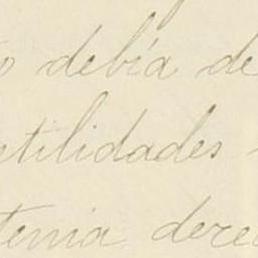 debía de
utilidades
tenia derec